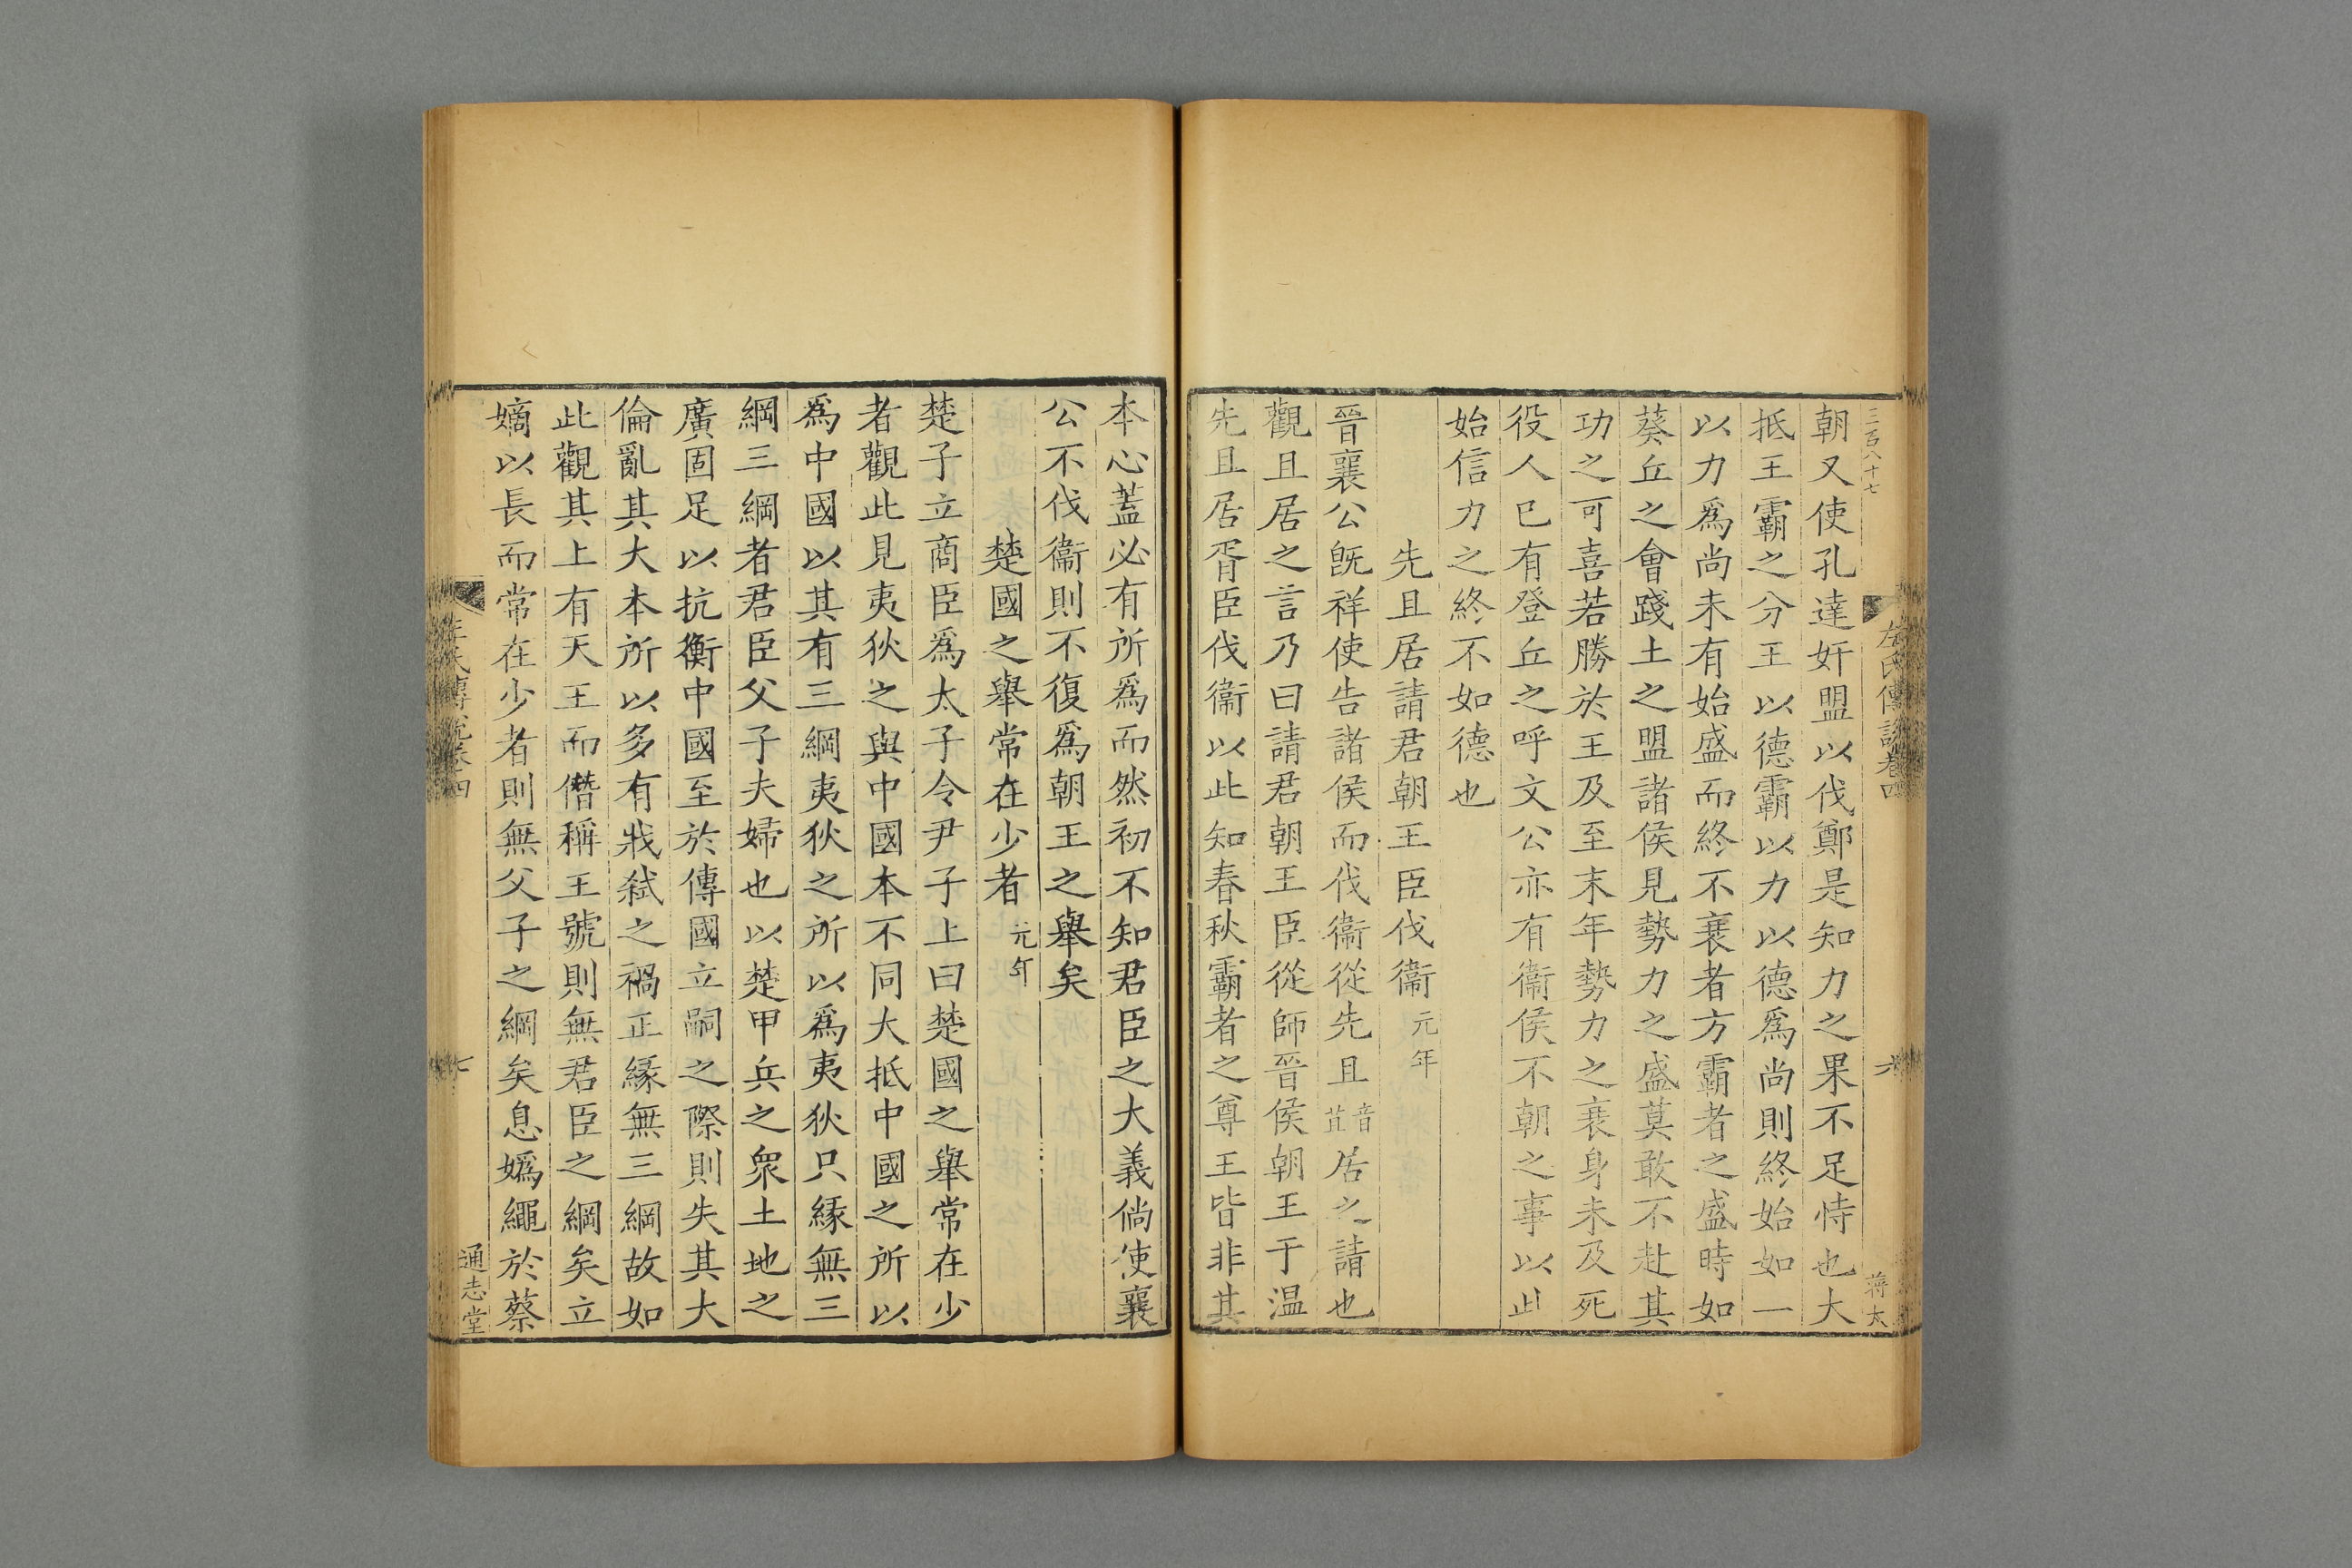 三百八十七
左氏傳說卷四
六
蔣太
朝又使孔達奸盟以伐鄭是知力之果不足恃也大
抵王霸之分王以德霸以力以德爲尚則終始如一
以力爲尚未有始盛而終不衰者方霸者之盛時如
葵丘之會踐土之盟諸侯見勢力之盛莫敢不赴其
功之可喜若勝於王及至末年勢力之衰身未及死
役人已有登丘之呼文公亦有衞侯不朝之事以此
始信力之終不如德也
先且居請君朝王臣伐衞元年
晉襄公旣祥使告諸侯而伐衞從先且音苴居之請也
觀且居之言乃曰請君朝王臣從師晉侯朝王于温
先且居胥臣伐衞以此知春秋霸者之尊王皆非其
本心蓋必有所爲而然初不知君臣之大義倘使襄
公不伐衞則不復爲朝王之舉矣
楚國之舉常在少者元年
楚子立商臣爲太子令尹子上曰楚國之舉常在少
者觀此見夷狄之與中國本不同大抵中國之所以
爲中國以其有三綱夷狄之所以爲夷狄只緣無三
綱三綱者君臣父子夫婦也以楚甲兵之衆土地之
廣固足以抗衡中國至於傳國立嗣之際則失其大
倫亂其大本所以多有戕弒之禍正緣無三綱故如
此觀其上有天王而僭稱王號則無君臣之綱矣立
嫡以長而常在少者則無父子之綱矣息嬀繩於蔡
左氏傳說卷四
七
通志堂